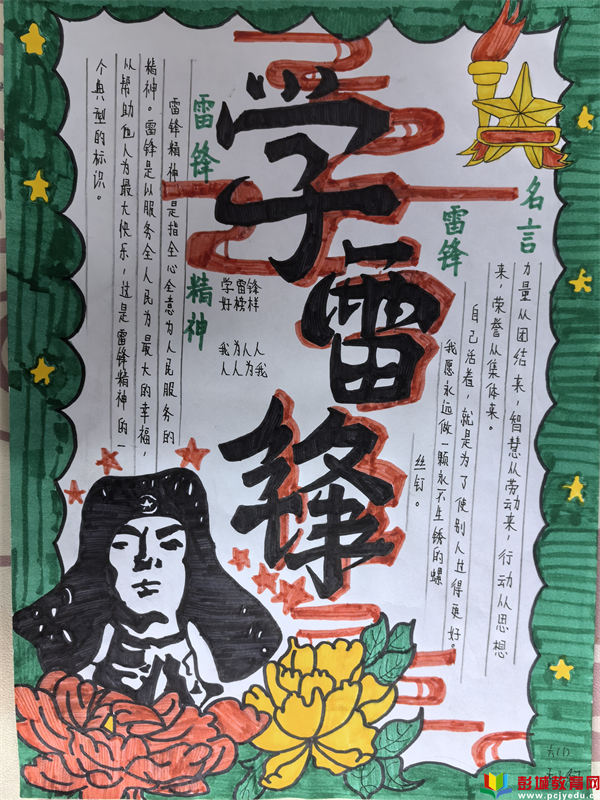 学雷锋
雷锋名言
力量从团结来，智慧从劳动来，行动从思想
来，荣誉从集体来。
自己活着，就是为了使别人过得更好。
我愿永远做一颗永不生锈的螺
丝钉。
学雷锋
好榜样
我为人人
人人为我
雷锋精神
雷锋精神，是指全心全意为人民服务的
精神。雷锋是以服务全人民为最大的幸福，
以帮助他人为最大快乐，这是雷锋精神的一
个典型的标识。
彭城教育网
www.pcjyedu.com